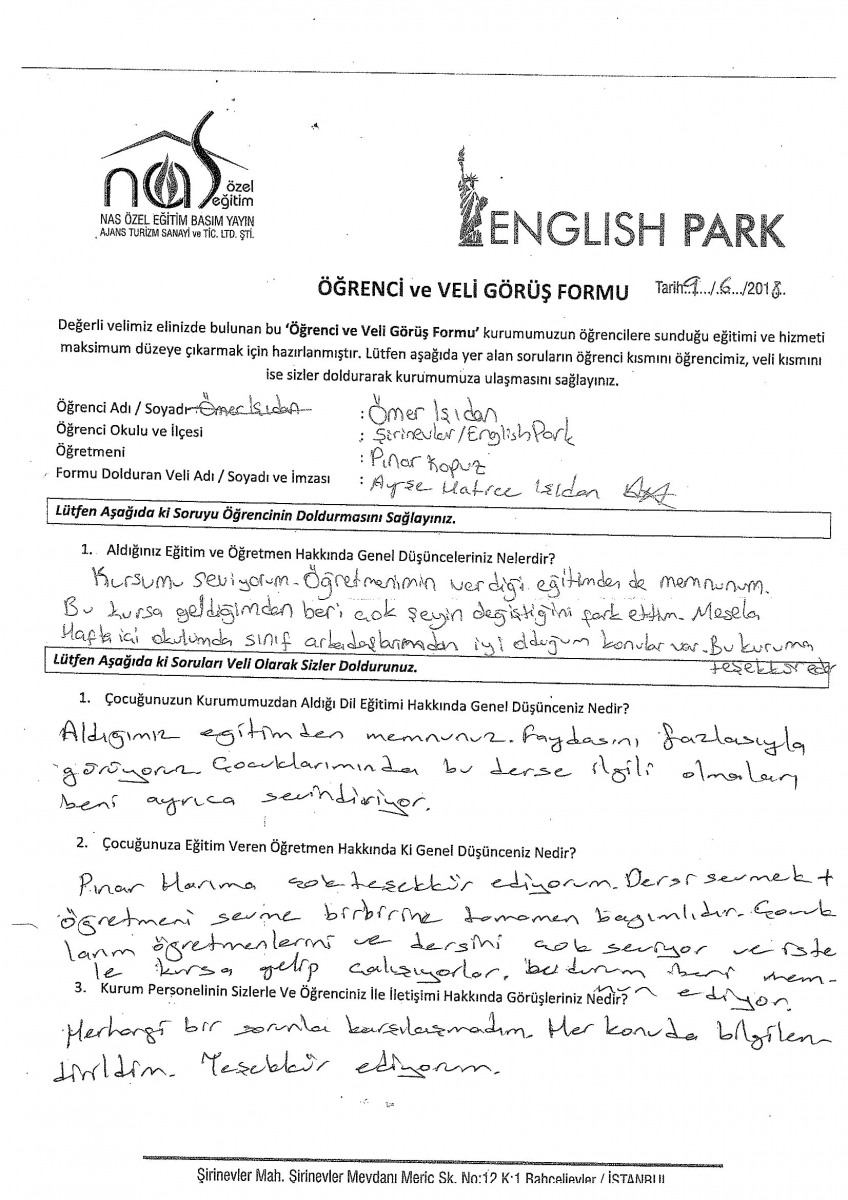 nas özel
eğitim
NAS ÖZEL EĞİTİM BASIM YAYIN
AJANS TURİZM SANAYİ ve TİC. LTD. ŞTİ.
ENGLISH PARK
ÖĞRENCİ ve VELİ GÖRÜŞ FORMU Tarih:9.../.6.../2018.
Değerli velimiz elinizde bulunan bu 'Öğrenci ve Veli Görüş Formu' kurumumuzun öğrencilere sunduğu eğitimi ve hizmeti
maksimum düzeye çıkarmak için hazırlanmıştır. Lütfen aşağıda yer alan soruların öğrenci kısmını öğrencimiz, veli kısmını
ise sizler doldurarak kurumumuza ulaşmasını sağlayınız.
Öğrenci Adı / Soyadı Ömer Işıdan : Ömer Işıdan
Öğrenci Okulu ve İlçesi : Şirinevler/EnglishPark
Öğretmeni : Pınar Kopuz
Formu Dolduran Veli Adı / Soyadı ve İmzası : Ayşe Hatice Işıdan
Lütfen Aşağıda ki Soruyu Öğrencinin Doldurmasını Sağlayınız.
1. Aldığınız Eğitim ve Öğretmen Hakkında Genel Düşünceleriniz Nelerdir?
Kursumu seviyorum. Öğretmenimin verdiği eğitimden de memnunum.
Bu kursa geldiğimden beri çok şeyin değiştiğini fark ettim. Mesela
Hafta içi okulumda sınıf arkadaşlarımdan iyi olduğum konular var. Bu kuruma
teşekkür eder
Lütfen Aşağıda ki Soruları Veli Olarak Sizler Doldurunuz.
1. Çocuğunuzun Kurumumuzdan Aldığı Dil Eğitimi Hakkında Genel Düşünceniz Nedir?
Aldığımız eğitimden memnunuz. Faydasını fazlasıyla
görüyoruz. Çocuklarımında bu derse ilgili olmaları
beni ayrıca sevindiriyor.
2. Çocuğunuza Eğitim Veren Öğretmen Hakkında Ki Genel Düşünceniz Nedir?
Pınar Hanıma çok teşekkür ediyorum. Dersi sevmek +
öğretmeni sevme birbirine tamamen bağımlıdır. Çocuk
larım öğretmenlerini ve dersini çok seviyor ve iste
le kursa gelip çalışıyorlar. bu durum beni mem-
nun ediyor.
3. Kurum Personelinin Sizlerle Ve Öğrenciniz İle İletişimi Hakkında Görüşleriniz Nedir?
Herhangi bir sorunla karşılaşmadım. Her konuda bilgilen
dirildim. Teşekkür ediyorum.
Şirinevler Mah. Şirinevler Meydanı Meriç Sk. No:12 K:1 Bahçelievler / İSTANBUL